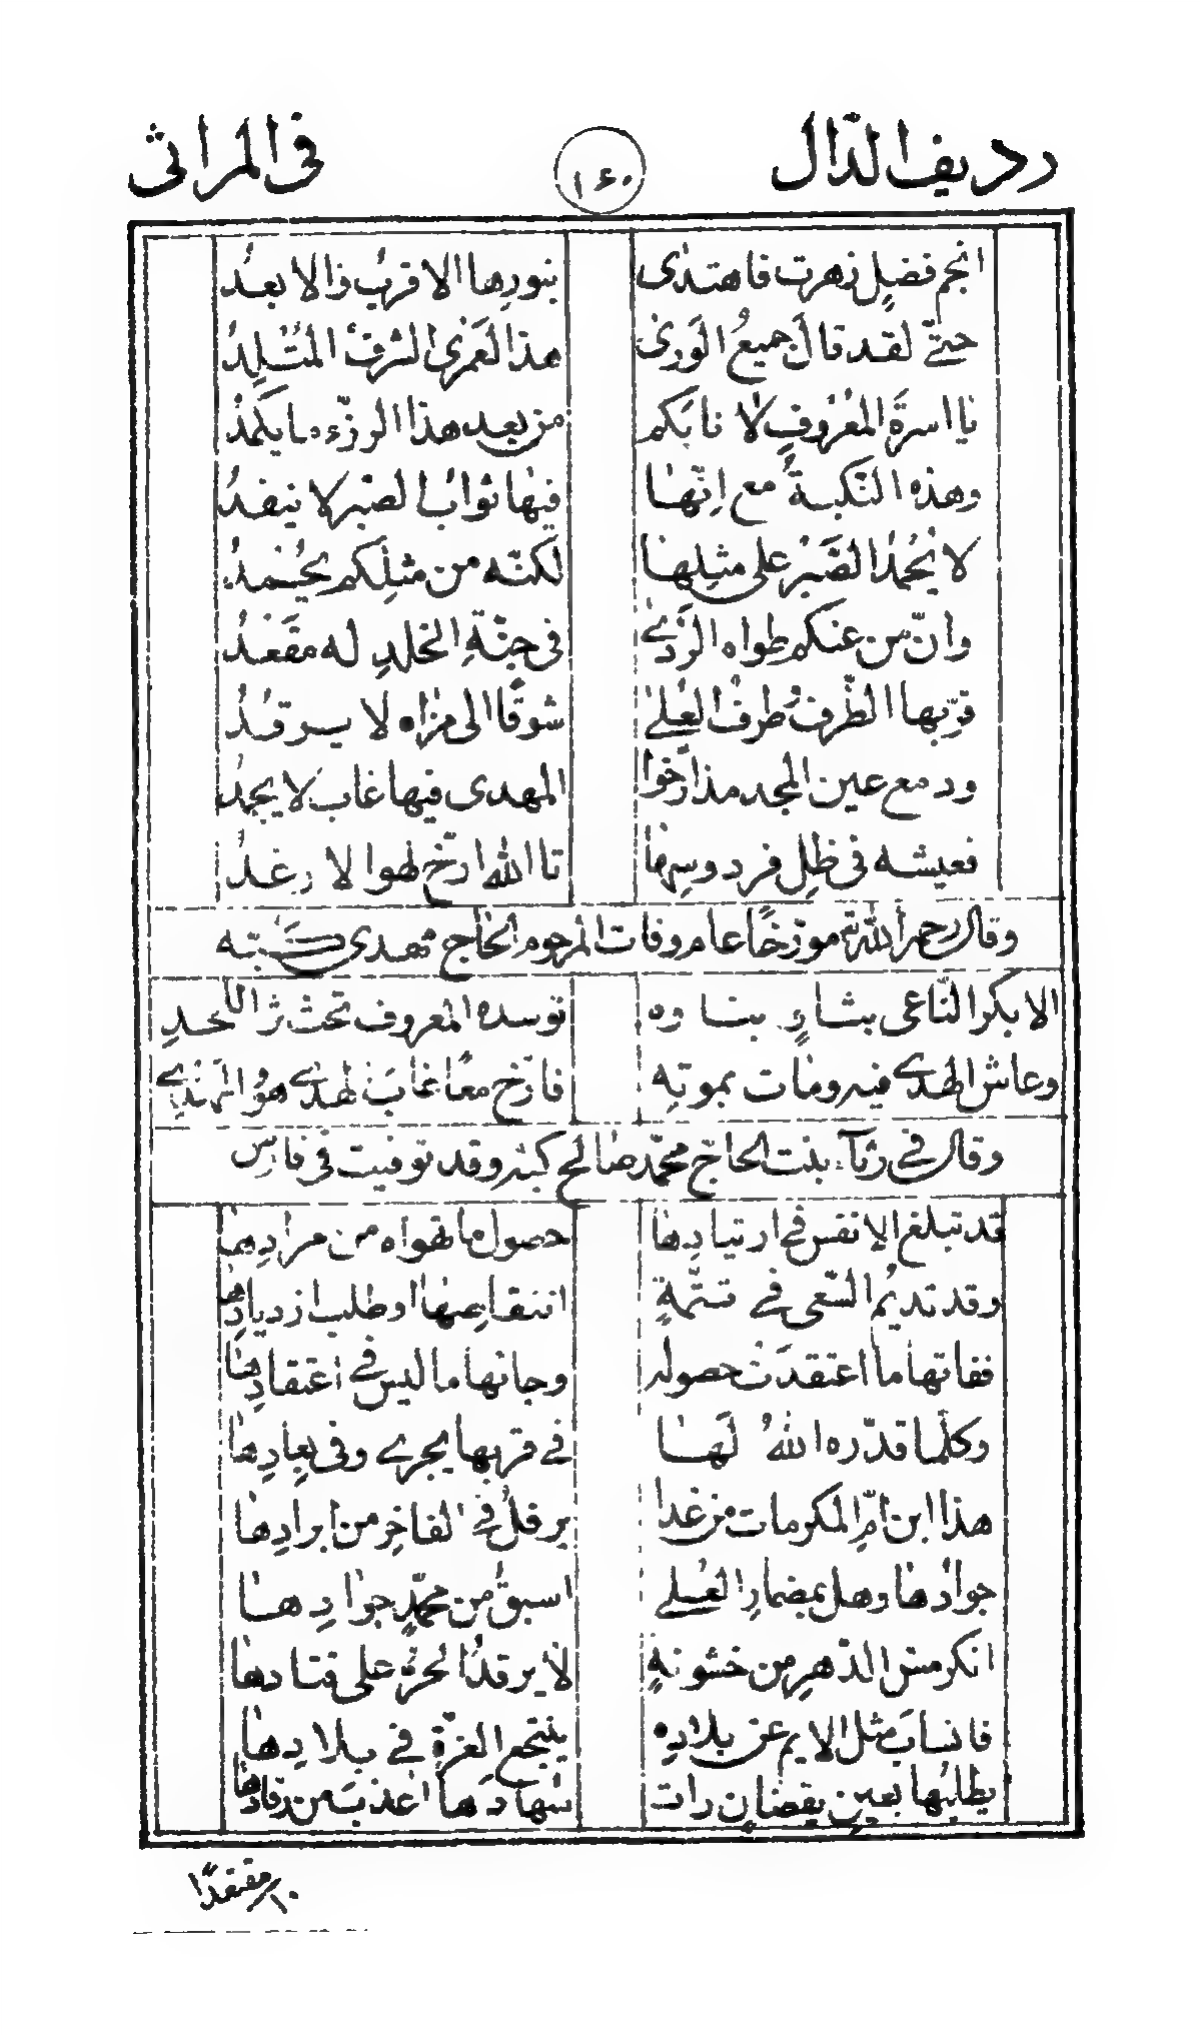 رديف الدّال ١٦٠ فى المراثى
انجم فضلٍ زهرت فاهتدى بنورِها الاقربُ ذالابعدُ
حتىّ لقد قال جميعُ الورىٰ هذا لعَمرى الشرفُ المُتلِدُ
يا اسرةَ المعروفِ لا نابَكم من بعد هذا الرزّء ما يكمدُ
وهذه النكبةُ مع انّها فيها ثوابُ الصبرلا ينفدُ
لا يُحمدُ الصَّبرُ على مثلِها لكنّه من مثلِكم يُحمدُ
وانّ من عنكم طواه الرَّدىٰ فى جنّةِ الخلدِ له مقعَدُ
قرّبها الطّرفُ طرفُ العُلىٰ شوقًا الى مزاه لا يرقدُ
ودمع عين المجد مذ ارّخوا المهدى فيها غاب لا يجمدُ
فعيشه فى ظلِ فردوسِها تا الله ارّخ لهوا لا رغدُ
وقال رحمه الله تع مورّخًا عام وفات المرحوم الحاج مهدى كبّه
الا بكر النّاعى بثاءٍ بناوه توسده المعروف تحت ثرا اللحدِ
وعاش الهدى فيه ومات بموتِه فارّخ معًا غابَ الهدىٰ هوُ المهدىِ
وقال فى رثآء بنت الحاجّ محمّد صالح كبّه وقد توفيت فى فارس
قد تبلغ الانفس فى ارتيادِها حصول ما تهواه من مرادِها
وقد تديمُ السّعى فى تتمّةٍ انتفاعِها او طلب ازديادِها
ففاتها ما اعتقدَت حصوله وجائها ما ليس فى اعتقادِها
وكلّما قدّره اللهُ لَها فى قربها يجرى وفى بِعادِها
هذا ابن امّ المكرمات من غدا يرفلُ فى الفاخِر من ابرادِها
جوادُها وهل بمضمارِ العُلى اسبقُ من محمّدٍ جوادِها
انكر مسّ الدّهرِ من خشونةٍ لا يرقدُ الحرّ على قتادها
فانسابَ مثل الايم عن بلادِه ينتجع العِزّةَ فى بلادِها
يطلبُها بعين يقضان رات سهادها اعذبَ من رقادها
مقتعدًا